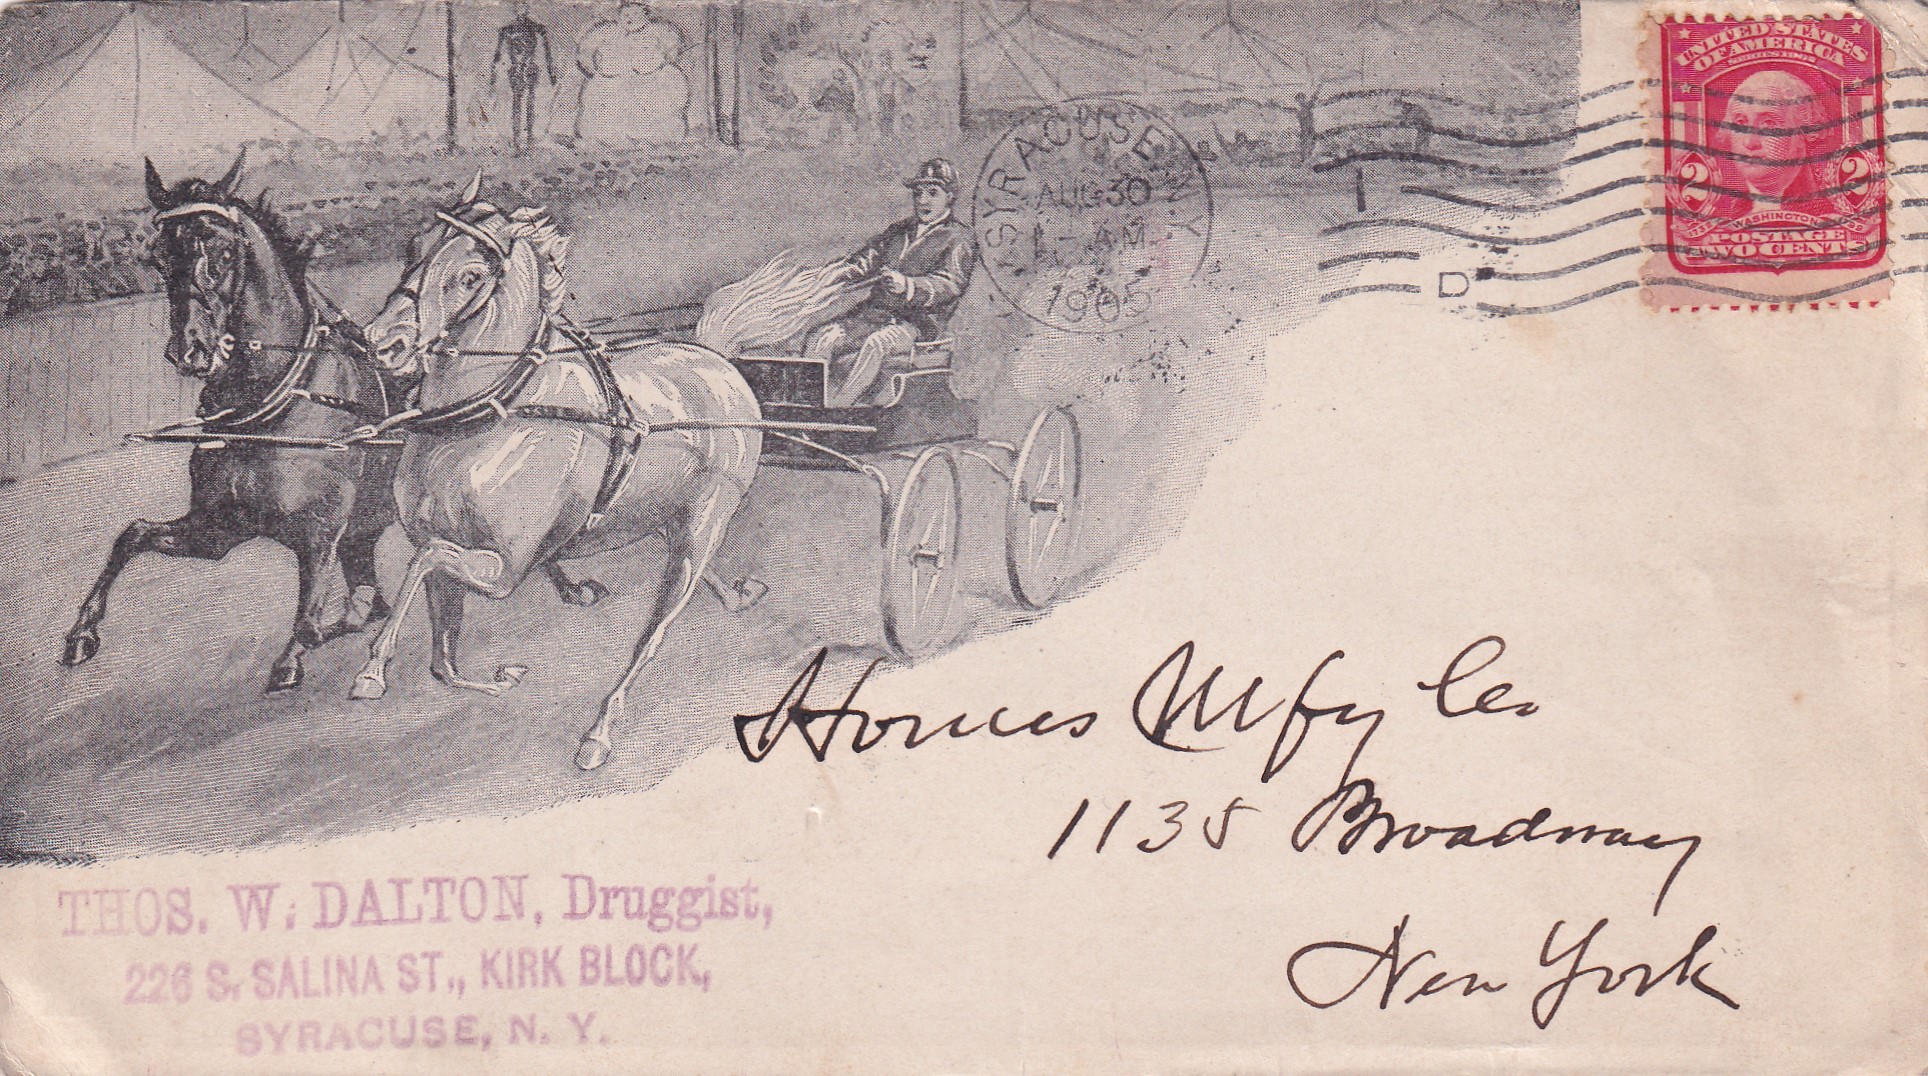 UNITED STATES
OF AMERICA
2 2
WASHINGTON
POSTAGE
TWO CENTS
SYRACUSE N.Y.
AUG 30
1905
D
Mfg Co.
1135 Broadway
New York
THOS. W. DALTON, Druggist,
226 S. SALINA ST., KIRK BLOCK,
SYRACUSE, N. Y.